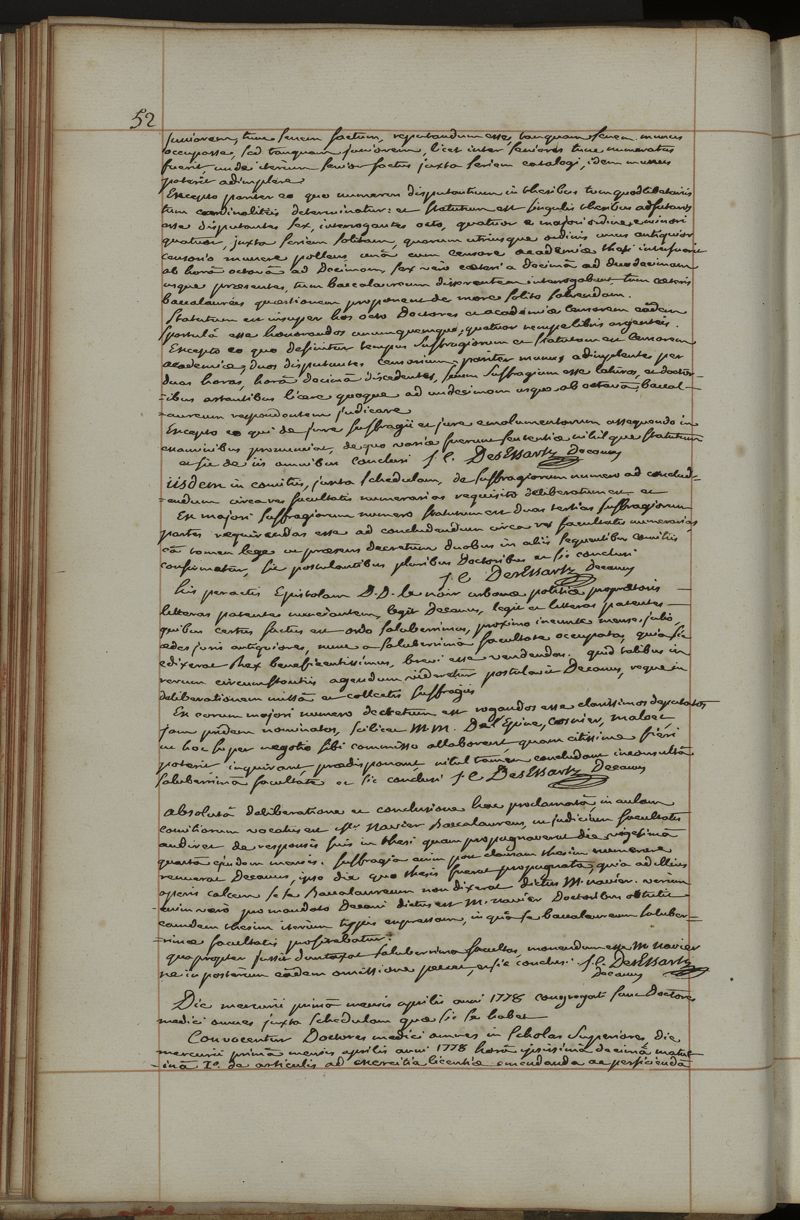 52
juniorem, tunc senem factum, reputandum esse, tanquam senem munus
occupasse, sed tanquam juniorem, licet inter seniores tunc numeratus
fuerit, unde iterum senior factus juxta seriem catalogi, idem munus
poterit adimplere
Excepto pariter eo quo numerus disputantium in thesibus tum quodlibetariis
tum cardinalitiis determinatur: et statutum est singulis thesibus adfuturos
esse disputantes sex, interrogantes octo, quatuor e majori ordine e minori
quatuor, juxta seriem solitam, quorum utriusque ordinis unus antiquior
censorio munere pollens unà cum censore academiæ thesi interfuerit
ab horâ octavâ ad decimam, sex verò cæteri a decimâ ad duodecimam
usque præsentes, tum baccalaureum disserentem interrogabunt, tum cæteris
baccalaureis quæstionem proponent de more solito solvendam.
Statutum est insuper hos octo Doctores et academiæ censorem eâdem
sportulâ esse honorandos unumquemque, quatuor nempe libris argenteis.
Excepto eo quo definitur tempus suffragiorum et statutum est censorem
academiæ, duos disputantes censorium pariter munus adimplentes per
duas horas, horâ decimâ discedentes, suum suffragium esse laturos, et doctor-
-ibus astantibus licere quoque ad undecimam usque ab octavâ, baccal-
-aureum respondentem judicare
Excepto eo qui de jure suffragii et jure emolumentorum assequendo in
examinibus pronunciat, de quo varia fuerunt sententia nihilque statutum
et sic de iis omnibus conclusi J. C. DesEssartz Decanus
iisdem in comitiis, juxta schedulam, de suffragiorum numero ad conclud-
-endum circa res facultatis numerarias requisito deliberatum est et
Ex majori suffragiorum numero statutum est duas tertias suffragiorum
partes requirendas esse ad concludendum circa res facultatis numerarias,
eâ tamen lege ut præsens decretum duobus in aliis sequentibus comitiis
confirmatur, sic postulantibus pluribus Doctoribus et sic conclusi
J. C. DesEssartz Decanus
his peractis Epistolam D. D. le noir urbanæ politiæ præpositi
litteras patentes nunciantem, legit Decanus, legit et litteras patentes
quibus certus factus est ordo saluberrimus, proximo ineunte mense julio,
ædes juris antiquiores, nunc a saluberrimâ facultate occupatas, quia sic
edixerat Rex beneficentissimus, brevi esse vendendas. quid talibus in
rerum circumstantiis agendum videretur postulavit Decanus, reque in
deliberationem missâ et collectis suffragiis
Ex eorum majori numero decretum est rogandos esse clarissimos deputatos
jam pridem nominatos, scilicet M.M. De l'Epine, Cosnier, Maloet,
ut hoc super negotio sibi commisso allaborent, quam citissime fieri
poterit inquirant, prædisponant, nihil tamen concludant inconsultâ
saluberrimâ facultate et sic conclusi J C DesEssartz Decanus
absolutâ deliberatione et conclusione hac proclamatâ, in aulam
comitiorum vocatus est Mr. Navier Baccalaureus, ut judicium facultatis
audiret de responsis suis in thesi quam propugnaverat die vigesimâ
quartâ ejusdem mensis. suffragia enim post clausam thesim numerare
renuerat Decanus, ipso die quo thesis fuerat propugnata, quia ad illius
operis calcem se se Baccalaureum non dixerat dictus M. navier. verum
enim vero pro mandato Decani dictus est M. navier Doctoribus obtulit
eamdem thesim iterùm typis expressam, in quâ se baccalaureum saluber-
-rimæ facultatis profitebatur.
quapropter jussit duntaxat saluberrima facultas, monendum esse M. Navier
ne in posterum eâdem omissione peccet, et sic conclusi. J. C. DesEssartz
Decanus
Die mercurii primâ mensis aprilis anni 1778 congregati sunt Doctores
medici omnes juxta schedulam quæ sic se habet
Convocentur Doctores medici omnes in Scholas Superiores, die
mercurii primâ mensis aprilis anni 1778 horâ ipsissimâ decimâ matut-
-inâ 1o. de articulis ad exercitia licentiæ emendanda ac perficienda